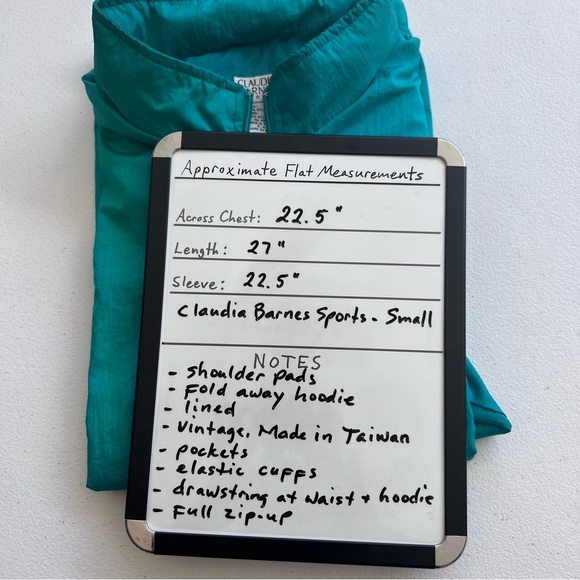 CLAUDI
Approximate Flat Measurements
Across Chest: 22.5"
Length: 27"
Sleeve: 22.5"
Claudia Barnes Sports - Small
NOTES
- shoulder pads
- Fold away hoodie
- lined
- Vintage, Made in Taiwan
- pockets
- elastic cuffs
- drawstring at waist + hoodie
- Full zip-up